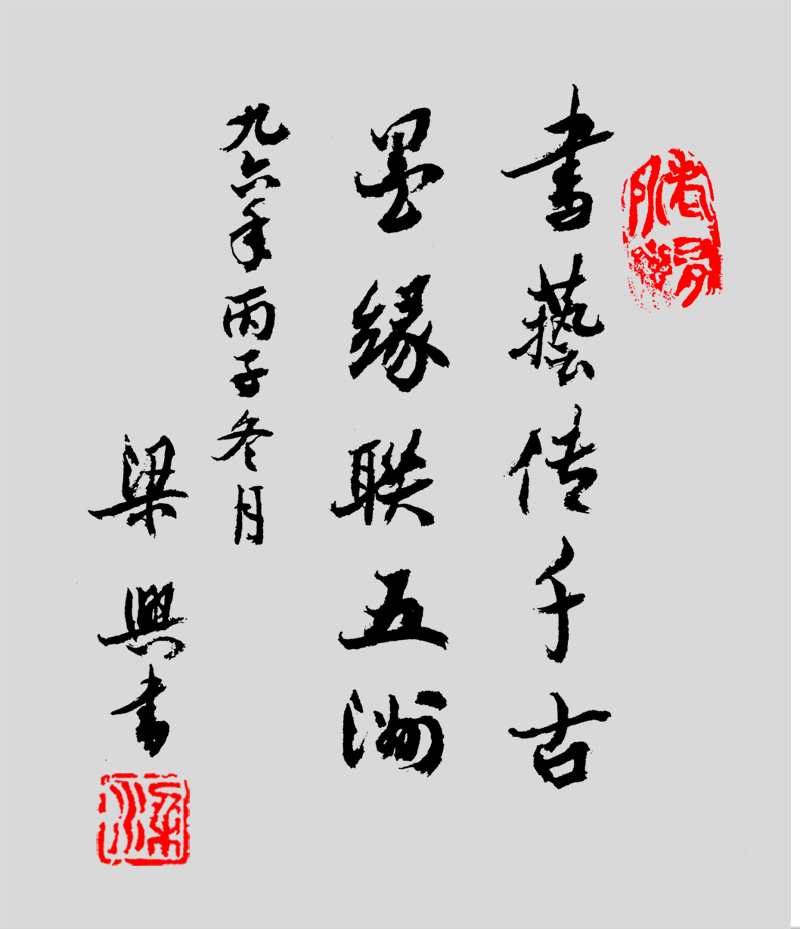 書藝传千古
墨缘联五洲
九六年丙子冬月
梁興書